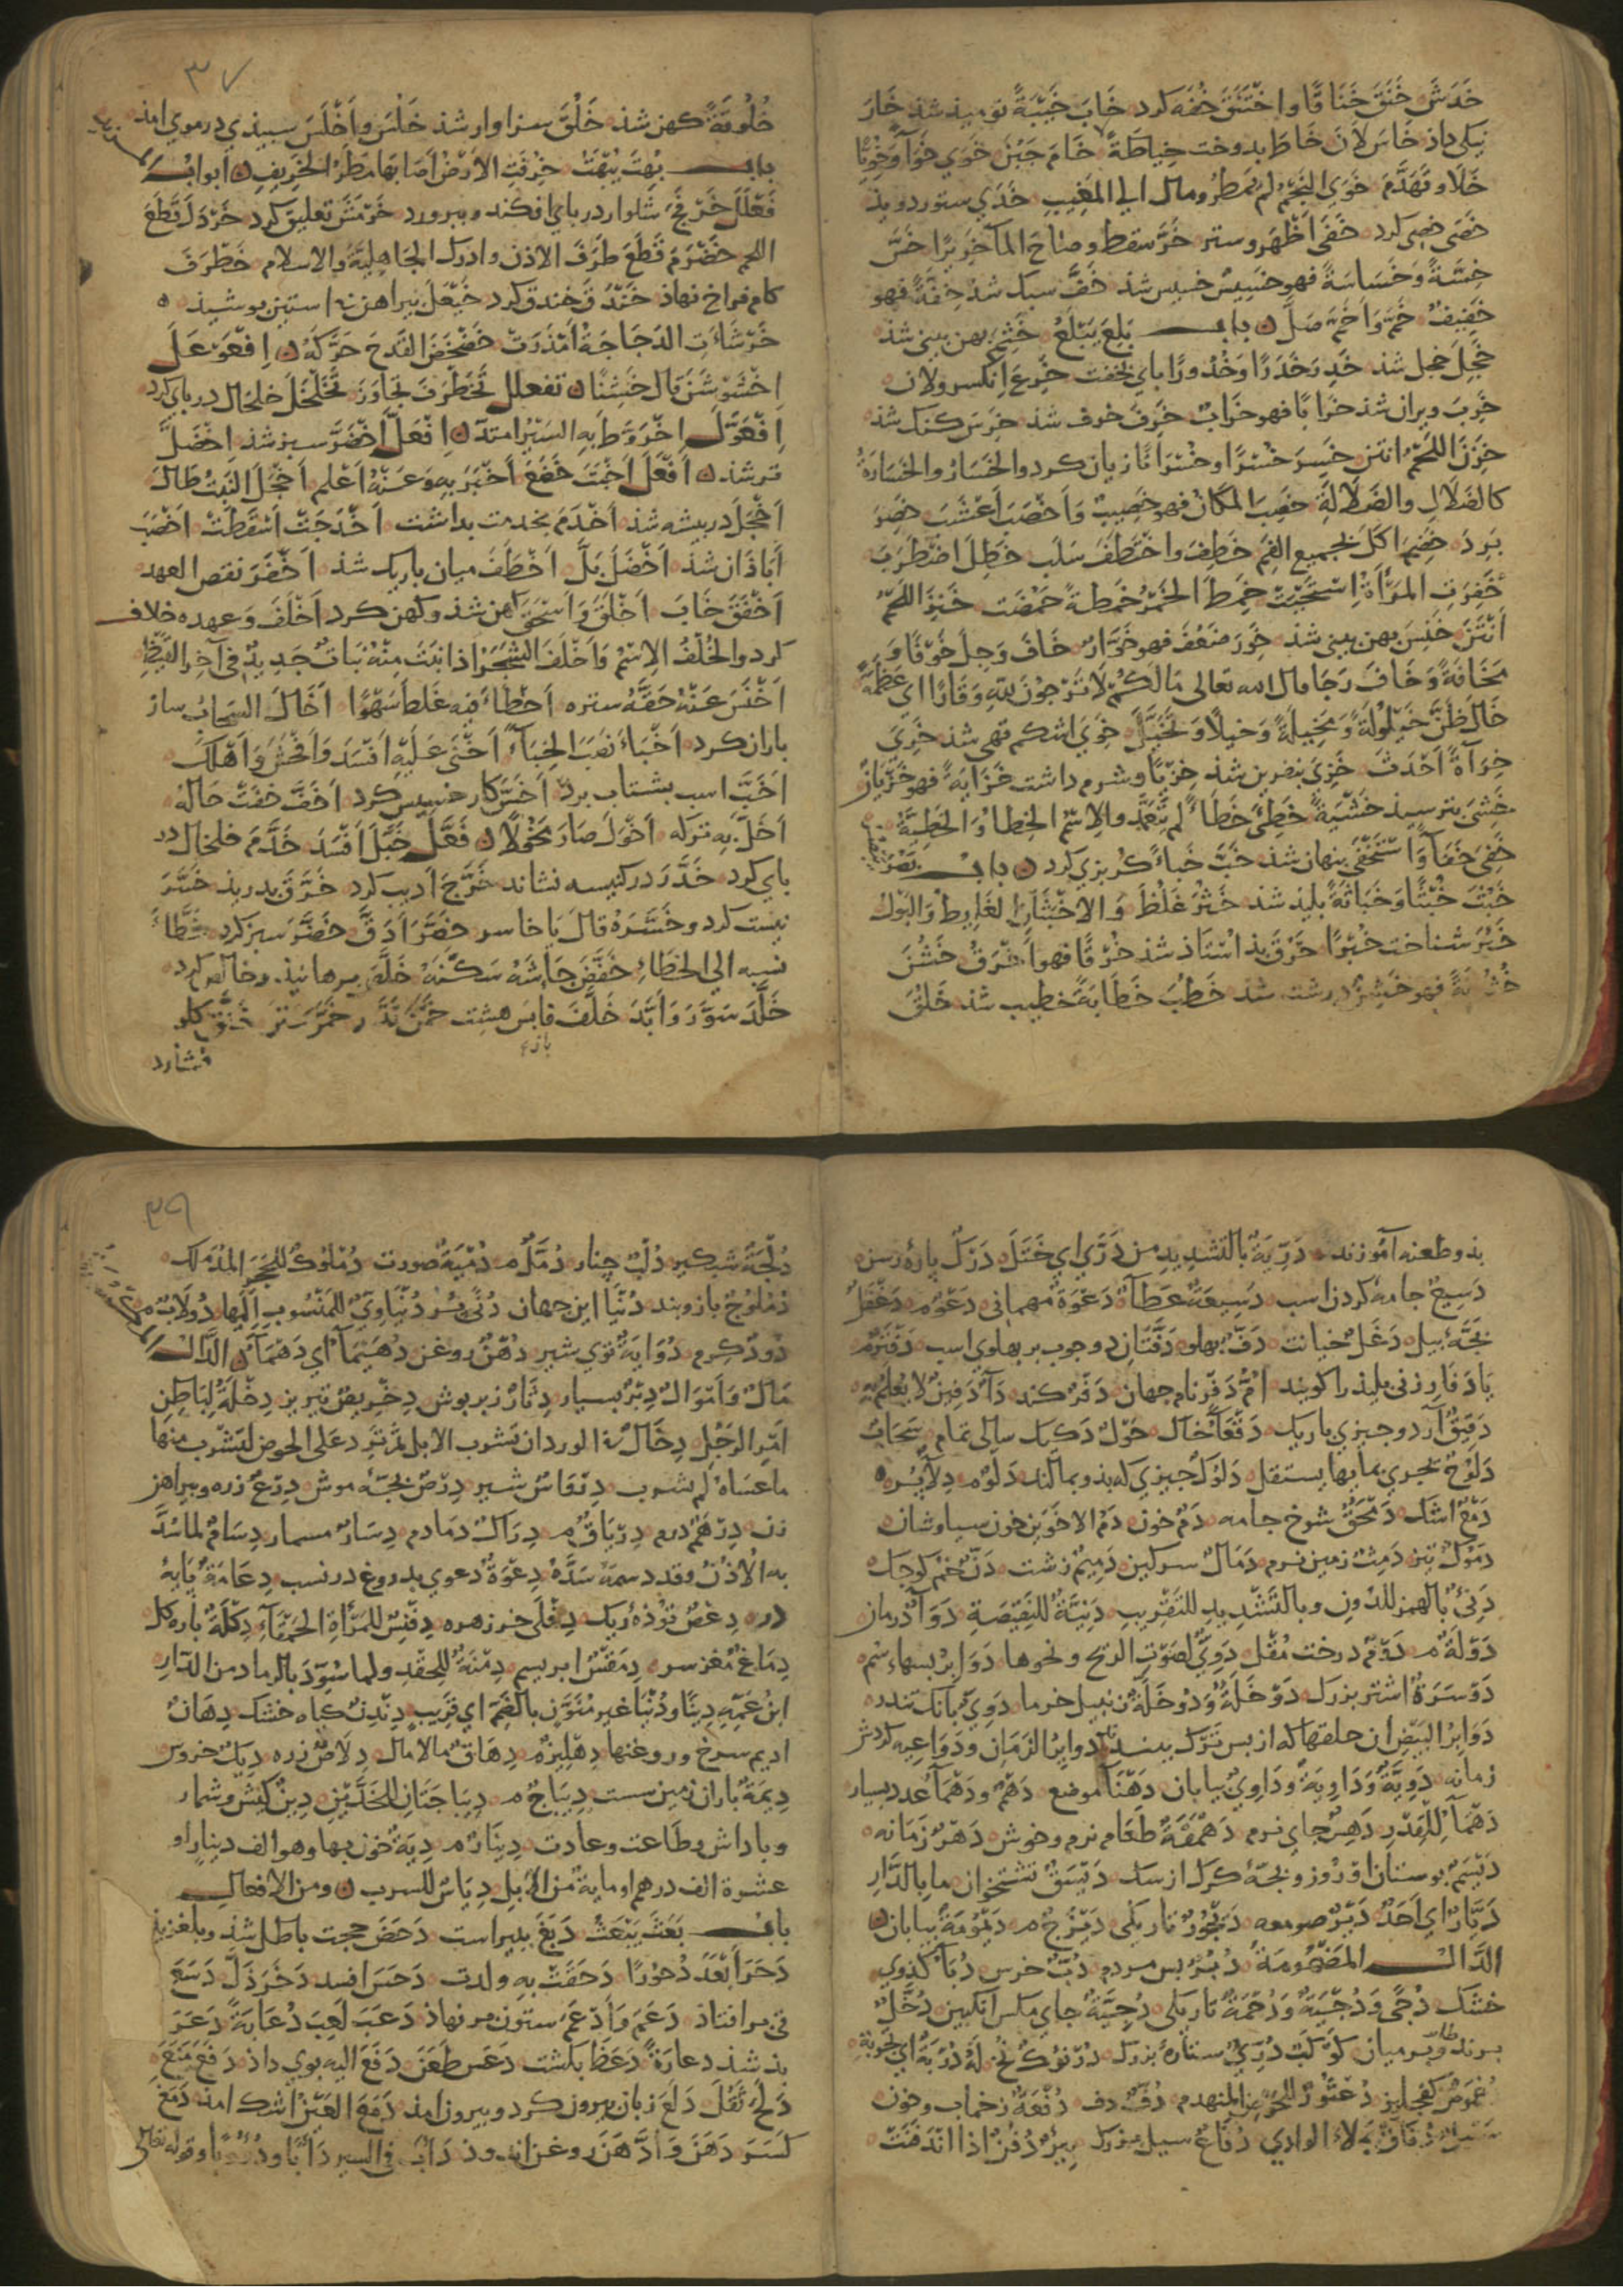 خَدَشَ خَنَقَ خِنَاقًا وَاخْتَنَقَ خفه کرد خَابَ خَيْبَةً نومیذ شذ خَارَ
نیکی داذ خَاسَ لَانَ خَاطَ بدوخت خِيَاطَةً خَامَ جَبُنَ خَوَى خَوَآءً وَخُوِيًّا
خَلَا وَتَهَدَّمَ خَوَى النَّجْمُ لَمْ يُمْطِرْ ومال الى المَغِيبِ خَذَى ستور دوید
خَصَى خصی کرد خَفَى اَظْهَرَ وستر خَرَّ سقط وصاح المآ خَرِيرًا خَسَّ
خِسَّةً وَخَسَاسَةً فهو خَسِيسٌ خسیس شذ خَفَّ سبک شذ خِفَّةً فهو
خَفِيفٌ خَمَّ وَاَخَمَّ صَلَّ باب بَلِعَ يَبْلَعُ خَثِمَ بهن بینی شذ
خَجِلَ خجل شذ خَدِرَ خَدَرًا وَخُدُورًا بای بخفت خَرِعَ اِنْكَسَرَ ولان
خَرِبَ ویران شذ خَرَابًا فهو خَرَابٌ خَرِفَ خرف شذ خَرِسَ کنک شذ
خَزِنَ اللَّحْمُ انتن خَسِرَ خُسْرًا وخُسْرَانًا زیان کرد والخَسَارُ والخَسَارَةُ
كالضَّلَالِ والضَّلَالَةِ خَصِبَ المَكَانُ فهو خَصِيبٌ وَاَخْصَبَ اَعْشَبَ خَصِرَ
بَرِدَ خَضِمَ اكل بجميع الفم خَطِفَ واخْتَطَفَ سَلَبَ خَطِلَ اضْطَرَبَ
خَفِرَتِ المَرْأَةُ اِسْتَحْيَتْ خَمِطَ الخَمْرُ خَمْطَةً حَمُضَت خَنِزَ اللَّحْمُ
اَنْتَنَ خَنِسَ بهن بینی شذ خَوِرَ ضَعُفَ فهو خَوَّارٌ خَافَ وَجِلَ خَوْفًا وَ
مَخَافَةً وَخَافَ رَجَا قال الله تعالى مَالَكُمْ لَا تَرْجُونَ لِلّهِ وَقَارًا اى عَظَمَةً
خَالَ ظَنَّ خَيْلُولَةً وَمَخِيلَةً وَخَيْلًا وَتَخَيَّلَ خَوِىَ اشکم تهی شذ خَرِىَ
خِرَآءَةً اَحْدَثَ خَزِىَ بنفرین شذ خِزْيًا وشرم داشت خَزَايَةً فهو خَزْيَانُ
خَشِىَ بترسیذ خَشْيَةً خَطِئَ خَطَأً لم يَتَعَمَّدْ والاِسْمُ الخِطَاءُ وَالخَطِيَّةُ
خَفِىَ خَفَآءً وَاسْتَخْفَى بنهان شذ خَبَّ خَبَاءً کربزی کرد باب بَصُرَ
خَبُثَ خُبْثًا وَخَبَاثَةً بلیذ شذ خَثُرَ غَلُظَ وَالاَخْبَثَانِ الغَايِطُ وَالبَوْلُ
خَبُرَ شناخت خُبْرًا خَرُقَ بذ استاذ شذ خُرْقًا فهو اَخْرَقُ خَشُنَ
خُشُونَةً فهو خَشِنٌ درشت شذ خَطُبَ خَطَابَةً خطیب شذ خَلُقَ
۳۷
خُلُوقَةً کهن شذ خَلُقَ سزاوار شذ خَلَسَ وَاَخْلَسَ سبیذی در موی امذ
باب بُهِتَ يُبْهَتُ خُرِفَتِ الاَرْضُ اَصَابَهَا مَطَرُ الخَرِيفِ ابواب
فَعْلَلَ خَرْفَجَ شلوار در بای افکند وببرورد خَرْمَشَ تعلیق کرد خَرْدَلَ قَطَعَ
اللحم خَضْرَمَ قَطَعَ طَرَفَ الاذن وادرك الجَاهِلِيَّةَ والاسلام خَطْرَفَ
کام فراخ نهاذ خَنْدَقَ خندق کرد خَيْعَلَ بیراهن نه استین بوشیذ
خَرْشَأَتِ الدَّجَاجَةُ اَمْذَرَتْ خَضْخَضَ القَدَحَ حَرَّكَهُ اِفْعَوْعَلَ
اِخْشَوْشَنَ قال خَشِنًا تفعلل تَخَطْرَفَ تَجَاوَزَ تَخَلْخَلَ خلخال در بای کرد
اِفْعَوَّلَ اخْرَوَّطَ بِهِ السَّيْرُ امتدّ اِفْعَلَّ اخْضَرَّ سبز شذ اِخْضَلَّ
تر شذ اَفْعَلَ اَخْبَتَ خَضَعَ اَخْبَرَ بِهِ وَعَنْهُ اَعْلَمَ اَخْجَلَ النَّبْتُ طَالَ
اَخْجَلَ در بیشه شذ اَخْدَمَ بخدمت بداشت اَخْدَجَتْ اَسْقَطَتْ اَخْصَبَ
اباذان شذ اَخْضَلَ بَلَّ اَخْطَفَ میان باریک شذ اَخْفَرَ نقض العهد
اَخْفَقَ خَابَ اَخْلَقَ وَاَسْحَقَ کهن شذ وکهن کرد اَخْلَفَ وَعهده خلاف
کرد والخُلْفُ الاِسْمُ وَاَخْلَفَ الشَّجَرُ اذا نَبَتَ مِنْهُ نَبَاتٌ جَدِيدٌ فى آخِرِ القَيْظِ
اَخْنَسَ عَنْهُ حَقَّهُ ستره اَخْطَاءَ فيه غَلِطَ سَهْوًا اَخَالَ السَّحَابُ ساز
باران کرد اَخْبَاءَ نَصَبَ الخِبَاءَ اَخْنَى عَلَيْهِ اَفْسَدَ وَاَفْحَشَ وَاَهْلَكَ
اَخَبَّ اسب بشتاب برد اَخَسَّ کار خسیس کرد اَخَفَّ خَفَّتْ حَالُهُ
اَخَلَّ بِهِ تركه اَخْوَلَ صَارَ مُخْوِلًا فَعَّلَ خَبَّلَ اَفْسَدَ خَدَّمَ خلخال در
بای کرد خَدَّرَ در کنیسه نشاند خَرَّجَ ادیب کرد خَرَّقَ بدرید خَسَّرَ
نیست کرد وخَسَّرَهُ قال یا خاسر خَصَّرَ اَدَقَّ خَضَّرَ سبز کرد خَطَّأَ
نسبه الى الخَطَاءِ خَفَّضَ جَاشَهُ سَكَّنَهُ خَلَّصَ برهانیذ وخالص کرد
خَلَّدَ سَوَّرَ وَاَبَّدَ خَلَّفَ وابس هشت خَمَّنَ قَدَّرَ خَمَّرَ سَتَرَ خَنَّقَ کلو
فشارد
بذ وطعنه آموزند دَرِيَّةٌ بالتشديد من دَرَّى اى خَتَلَ دَرَكٌ باره رسن
دَسِيعٌ جامه کردن اسب دَسِيعَةٌ عَطَآءٌ دَعْوَةٌ مهمانی دَعْوٌ م دَغْفَلٌ
بجّهٔ بیل دَغَلٌ خیانت دَفٌّ بهلو دَفَّتَانِ دو جوب بر بهلوی اسب دَفْتَرٌ م
یَا دَفَارِ زنی بلیذ را کویند اُمُّ دَفْرٍ نام جهان دَفْرٌ کند دَآءٌ دَفِينٌ لا يُعْلَمُ بِهِ
دَقِيقٌ آرد وجیزی باریک دَقْعَآءُ خاک حَوْلٌ دَكِيكٌ سالی تمام سَحَابٌ
دَلُوحٌ تجرى بمآئها يستقل دَلُوكٌ جیزی که بذو بمالند دَلْوٌ م دِلَآءٌ بسره
دَمْعٌ اشک دَمْحَقٌ شوخ جامه دَمٌ خون دَمُ الاخَوَيْنِ خون سیاوشان
دَمُوكٌ تیز دَمِثٌ زمین نرم دَمَالٌ سرکین دَمِيمٌ زشت دَنٌّ خنم کوجک
دَنِئٌ بالهمز للدون وبالتَّشْدِيدِ للتَّقْرِيبِ دَنِيَّةٌ للنَّقِيصَةِ دَوَآءٌ درمان
دَوْلَةٌ م دَوْمٌ درخت مُقْل دَوِىٌّ لِصَوْتِ الرِّيحِ ونحوها دَوَابِرُ بسهاء سُم
دَوْسَرَةٌ اشتر بزرک دَوْخَلَّةٌ وَدَوْخَلَةٌ زنبیل خرما دَوِىٌّ بانک تندر
دَوَابِرُ البَيْضِ ان حلقها که از بس تَرک بینند دوابرُ الزمان ودواعیه کردش
زمانه دَوِيَّةٌ وَدَاوِيَةٌ وَدَاوِىٌّ بیابان دَهْنَآءُ موضع دَهْمٌ ودَهْمَآءُ عدد بسیار
دَهْمَآءُ لِلْقِدْرِ دَهِسٌ جای نرم دَهْمَقَةٌ طَعَام نرم وخوش دَهْرٌ زَمَانه
دَيْسَمٌ بوستان افروز وبجهٔ کرک از سک دَيْسَقٌ تشتخوان ما بالدَّارِ
دَيَّارٌ اى اَحَدٌ دَيْرٌ صومعه دَيْجُورٌ تاریکی دَيْزَجٌ م دَيْمُومَةٌ بیابان
الدَّالُ المَضْمُومَةُ دُبُرٌ بس مردم دُبٌّ خرس دُبَّآءٌ کدوی
خشک دُجًى وَدُجْيَةٌ وَدُجْمَةٌ تاریکی دُجْيَةٌ جای مکس انکبین دُخَّلٌ
برنده وبرمیان کَوْكَبٌ دُرِّىٌّ ستارهٔ بزرک دُرْنُوكٌ نخ لَهُ دُرْبَةٌ اى تَجْرِبَةٌ
دُعْمُوصٌ کفجلیز دُعْثُورٌ للحَوْضِ المنهدم دُفٌّ دف دُفْعَةٌ زخماب وخون
سَيْلٌ دُفَاقٌ يَمْلَاءُ الوادى دُفَّاعٌ سیل بزرک بِئْرٌ دُفُنٌ اذا انْدَفَنَتْ
۳۹
دُلْجَةٌ شبکیر دُلْبٌ جنار دُمَّلٌ م دُمْيَةٌ صورت دُمْلُوكٌ للحَجَرِ المُدَمْلَكِ
دُمْلُوجٌ بازوبند دُنْيَا این جهان دُنًى ودُنْيَاوِىٌّ للمَنْسُوبِ اِلَيْهَا دُولَابٌ م
دُودٌ کرم دُوَايَةٌ توی شیر دُهْنٌ روغن دُهَيْمَآءُ اى دَهْمَآءُ الدَّالُ
مَالٌ وَاَمْوَالٌ دِبْرٌ بسیار دِثَارٌ زبربوش دِخْرِيصٌ تیریز دِخْلَةٌ لِبَاطِنِ
اَمْرِ الرَّجُلِ دِخَالٌ فى الوِرْدِ ان تشرب الابل ثم تُرَدَّ على الحوض ليَشْرَبَ منها
ما عساه لم يشرب دِرْفَاسٌ شیر دِرْصٌ بجهٔ موش دِرْعٌ زره وبیراهن
زن دِرْهَمٌ درم دِرْيَاقٌ م دِرَاكٌ دمادم دِسَارٌ مسمار دِسَامٌ لما سُدَّ
به الاُذُنُ وقد دسمه سَدَّهُ دِعْوَةٌ دعوی بدروغ در نسب دِعَامَةٌ بَایهٔ
در دِعْصٌ تودهٔ ریک دِفْلَى خر زهره دِفْنِسٌ للمَرْأَةِ الحَمْقَآءِ دِكَلَةٌ باره کل
دِمَاغٌ مغز سر دِمَقْسٌ ابریسم دِمْنَةٌ للحِقْدِ ولما سُوِّدَ بالرماد من الدّارِ
ابنُ عَمِّهِ دِنْيًا ودُنْيَا غیر مُنَوَّنٍ بالضَّمِّ اى قَرِيبٍ دِنْدِنٌ کاه خشک دِهَانٌ
ادیم سرخ وروغنها دِهْلِيزٌ م دِهَاقٌ مالامال دِلَاصٌ زره دِيكٌ خروس
دِيمَةٌ باران زمین سست دِيبَاجٌ م دِيبَاجَتَانِ للخَدَّيْنِ دِينٌ کیش وشمار
وباداش وطَاعت وعادت دِينَارٌ م دِيَةٌ خون بها وهو الف دینار او
عشرة الف درهم او ماية من الابل دِيَاسٌ للسرب ومن الافعال
باب بَعَثَ يَبْعَثُ دَبَغَ بیبراست دَحَضَ حجت باطل شذ وبلغزیذ
دَحَرَ اَبْعَدَ دُحُورًا دَحَقَتْ بِهِ ولدت دَحَسَ افسد دَخَرَ ذَلَّ دَسَعَ
قی برافتاد دَعَمَ وَاَدْعَمَ ستون برنهاذ دَعَبَ لَعِبَ دُعَابَةً دَعَرَ
بذ شذ دعارَةً دَعَظَ بکشت دَعَسَ طَعَنَ دَفَعَ اليه بوی داذ دَفَعَ مَنَعَ
دَلَحَ ثَقُلَ دَلَعَ زبان بیرون کرد وبیرون امذ دَمَعَ العَيْنُ اشک امذ دَمَغَ
كَسَرَ دَهَنَ وَاَدَّهَنَ روغن اندوذ دَابَ فى السير دَأْبًا ودُؤُوبًا وقوله تعالى